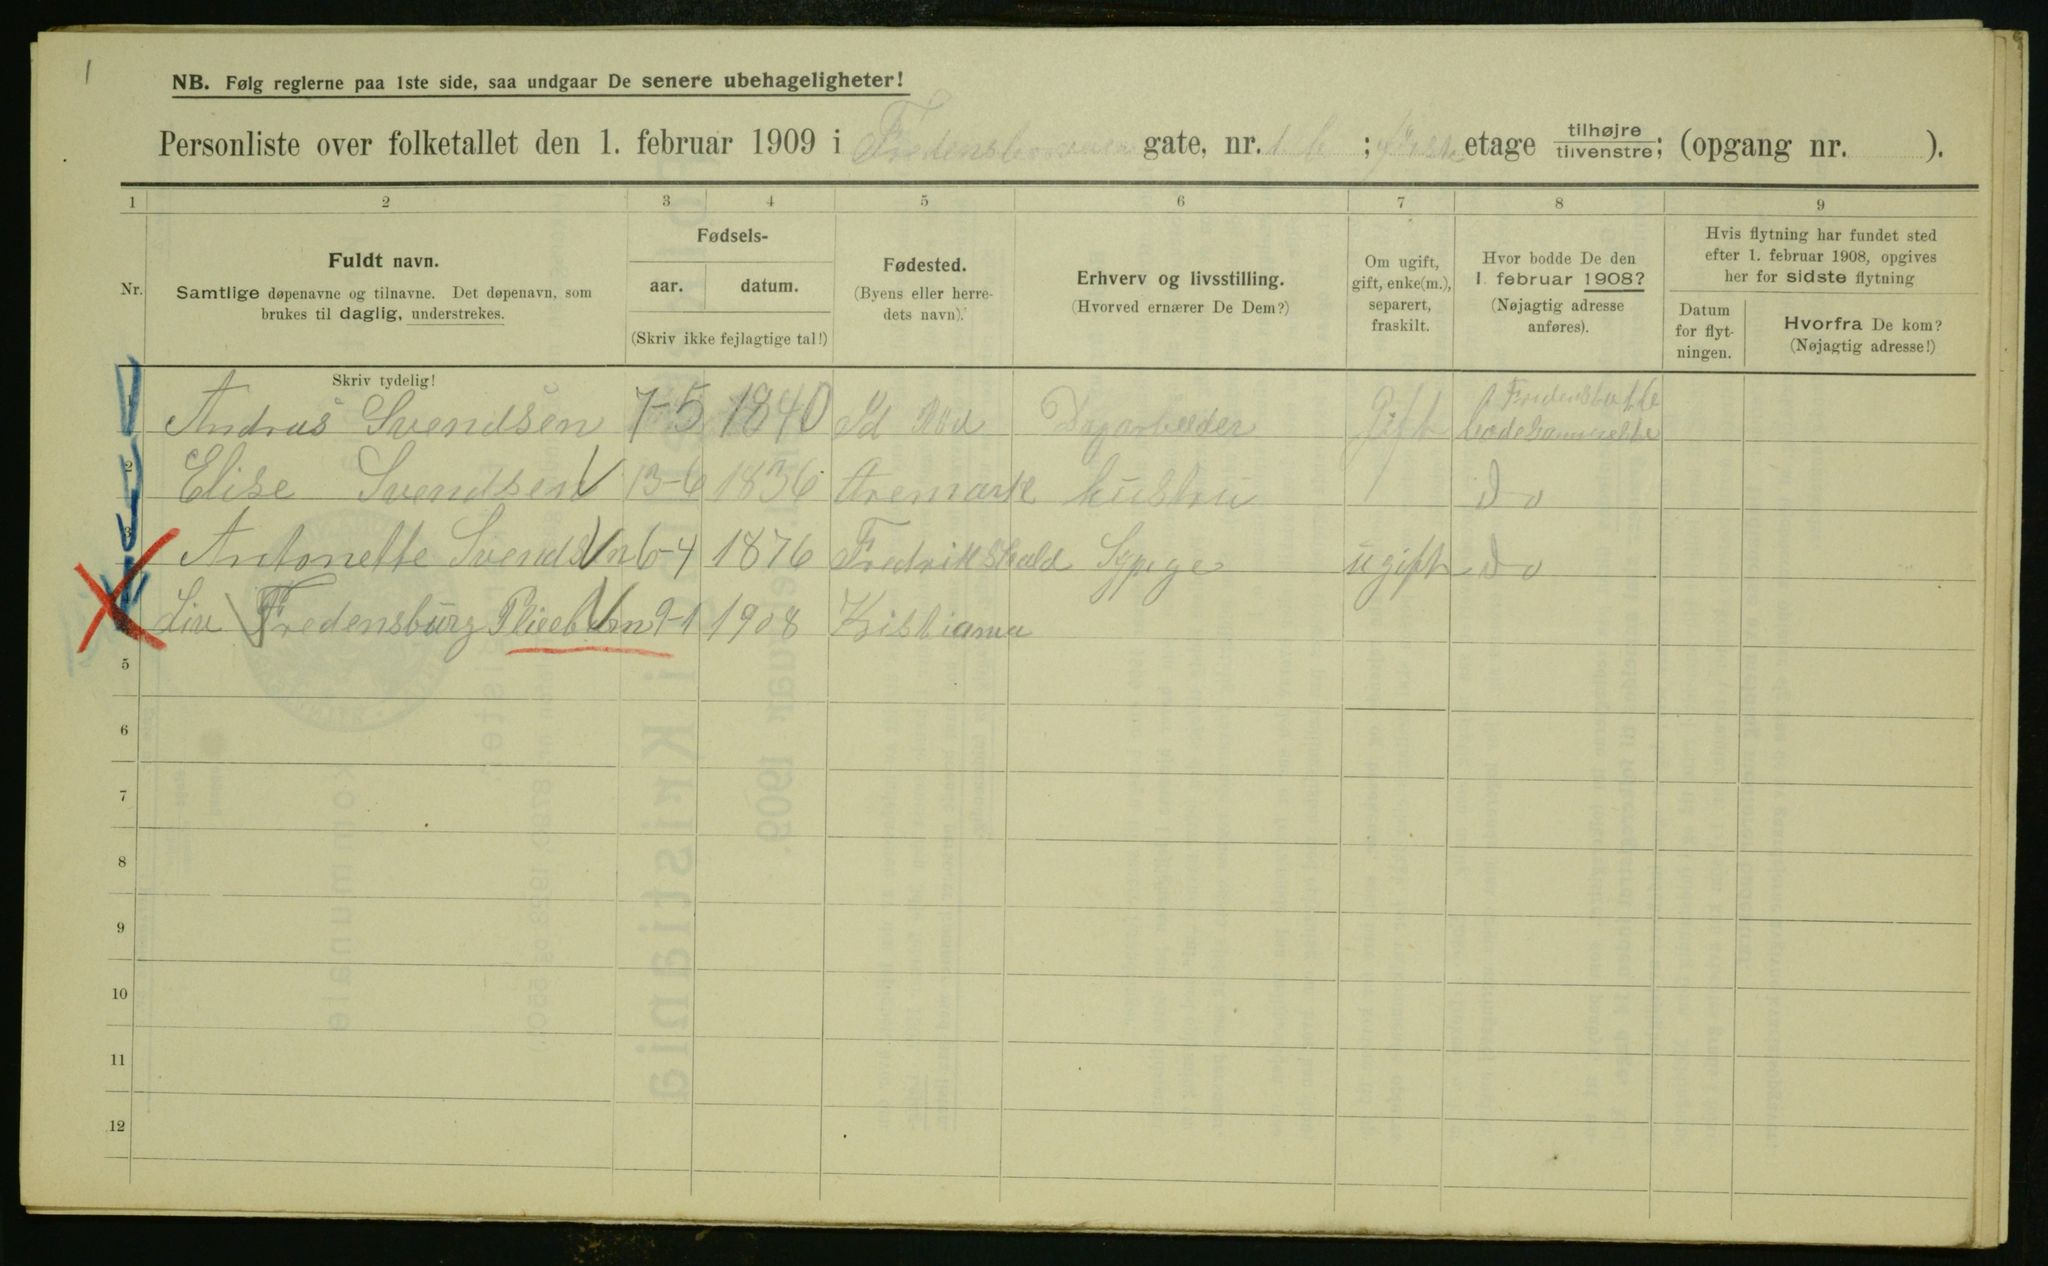 1
NB. Følg reglerne paa 1ste side, saa undgaar De senere ubehageligheter!
Personliste over folketallet den 1. februar 1909 i Fredensborgveien gate, nr. 1 b ; etage tilhøjre
tilvenstre; (opgang nr. ).
1 2 3 4 5 6 7 8 9
Nr.
Fuldt navn.
Samtlige døpenavne og tilnavne. Det døpenavn, som
brukes til daglig, understrekes.
Fødsels-
aar. datum.
(Skriv ikke fejlagtige tal!)
Fødested.
(Byens eller herre-
dets navn).
Erhverv og livsstilling.
(Hvorved ernærer De Dem?)
Om ugift,
gift, enke(m.),
separert,
fraskilt.
Hvor bodde De den
1. februar 1908?
(Nøjagtig adresse
anføres).
Hvis flytning har fundet sted
efter 1. februar 1908, opgives
her for sidste flytning
Datum
for flyt-
ningen.
Hvorfra De kom?
(Nøjagtig adresse!)
Skriv tydelig!
1 Andras Svendsen 7-5 1840 Id Dagarbeider gift
2 Elise Svendsen 13-6 1836 Aremark hustru Do
3 Antonette Svendsen 6-4 1876 Fredrikshald Sypige ugift Do
Liv Fredensburg 9-1 1908 Kistiania
5
6
7
8
9
10
11
12